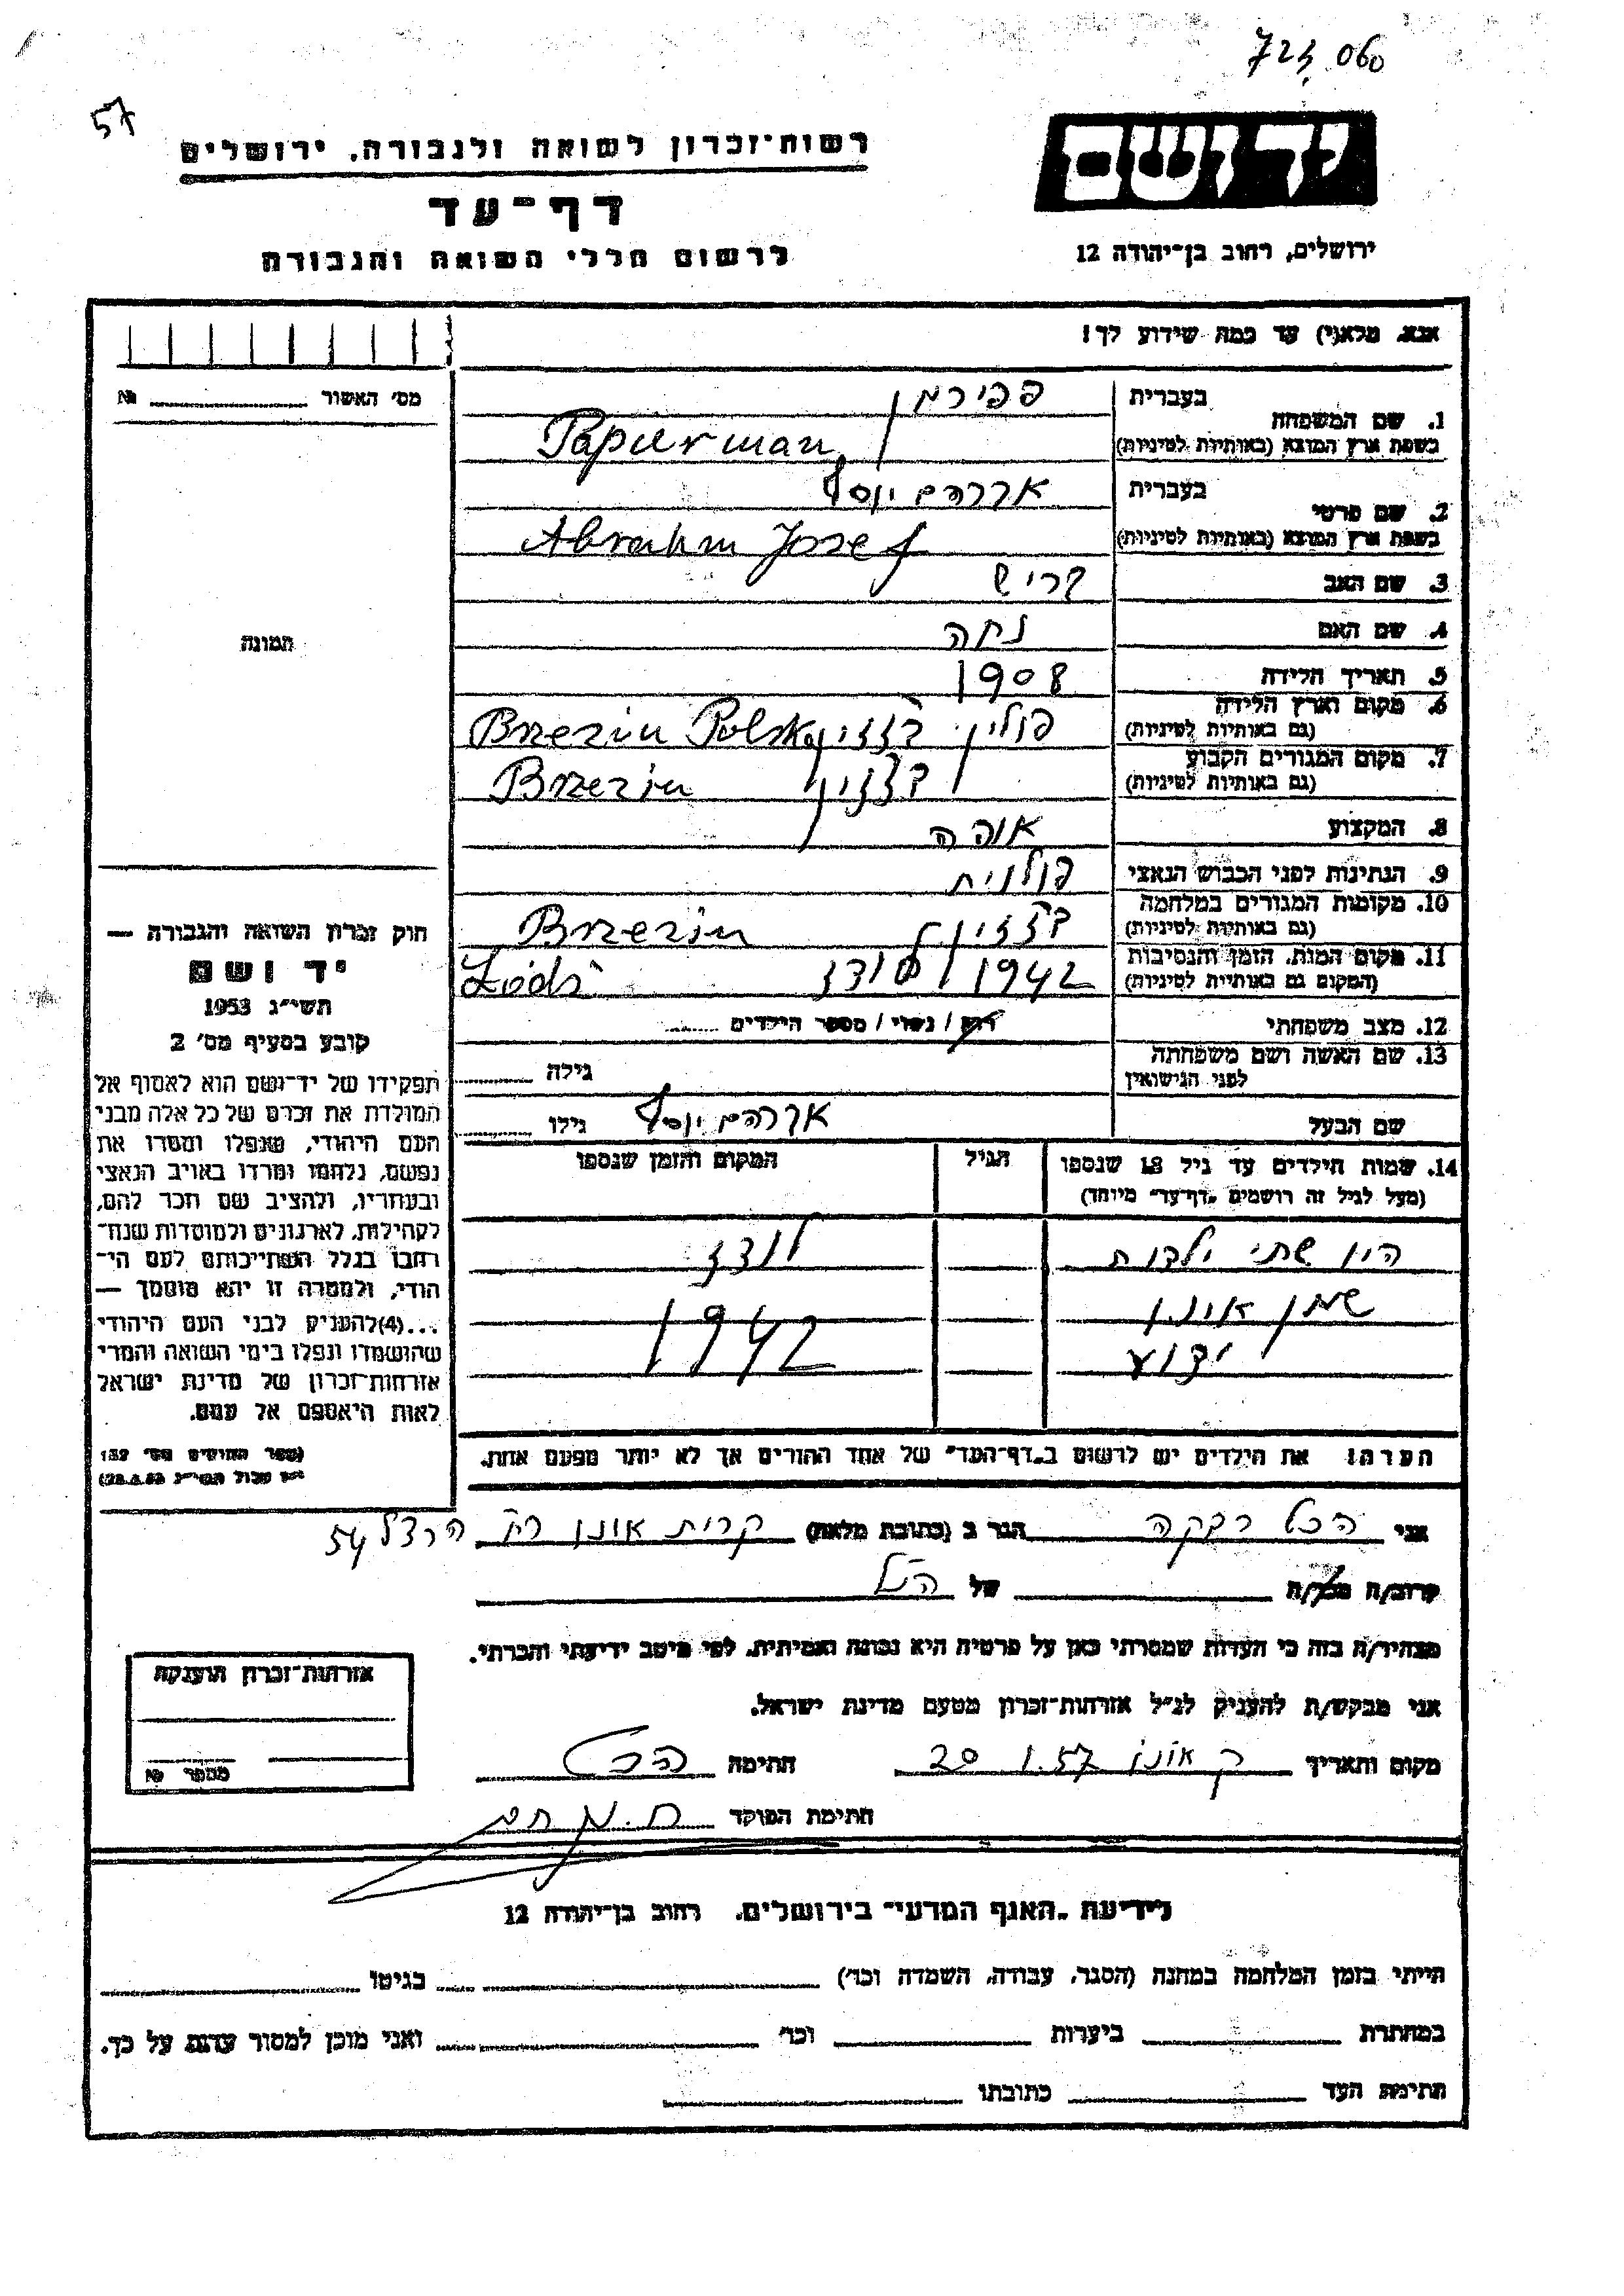 723,060
57
יד ושם
ירושלים, רחוב בן־יהודה 12
רשות־זכרון לשואה ולגבורה, ירושלים
דף־עד
לרשום חללי השואה והגבורה
אנא, מלא(י) עד כמה שידוע לך!
מס׳ האשור № 
1. שם המשפחה
בעברית פפירמן
בשפת ארץ המוצא (באותיות לטיניות) Papierman
2. שם פרטי
בעברית אברהם יוסף
בשפת ארץ המוצא (באותיות לטיניות) Abrahm Josef
3. שם האב
4. שם האם נחה
5. תאריך הלידה 1908
6. מקום וארץ הלידה (גם באותיות לטיניות) פולין בזזין Brzezin Polska
7. מקום המגורים הקבוע (גם באותיות לטיניות) בזזין Brzezin
8. המקצוע אופה
9. הנתינות לפני הכבוש הנאצי פולנית
10. מקומות המגורים במלחמה (גם באותיות לטיניות) בזזין Brzezin
11. מקום המות, הזמן והנסיבות (המקום גם באותיות לטיניות) 1942 לודז Łódź
12. מצב משפחתי רוק / נשוי / מספר הילדים
13. שם האשה ושם משפחתה לפני הנישואין גילה
שם הבעל אברהם יוסף גילו
14. שמות הילדים עד גיל 18 שנספו
(מעל לגיל זה רושמים „דף־עד״ מיוחד)
הגיל
המקום והזמן שנספו
היו שתי ילדות לודז
שמן אינן 1942
ידוע
הערה: את הילדים יש לרשום ב„דף־העד״ של אחד ההורים אך לא יותר מפעם אחת.
תמונה
חוק זכרון השואה והגבורה —
יד ושם
תשי״ג 1953
קובע בסעיף מס׳ 2
תפקידו של יד־ושם הוא לאסוף אל
המולדת את זכרם של כל אלה מבני
העם היהודי, שנפלו ומסרו את
נפשם, נלחמו ומרדו באויב הנאצי
ובעוזריו, ולהציב שם וזכר להם,
לקהילות, לארגונים ולמוסדות שנח־
רבו בגלל השתייכותם לעם הי־
הודי, ולמטרה זו יהא מוסמך —
...(4) להעניק לבני העם היהודי
שהושמדו ונפלו בימי השואה והמרי
אזרחות־זכרון של מדינת ישראל
לאות היאספם אל עמם.
(ספר החוקים מס׳ 132
אני רבקה הגר ב (כתובת מלאה) קרית אונו רח הרצל 54
קרוב/ה מכר/ה של הנ״ל
מצהיר/ה בזה כי העדות שמסרתי כאן על פרטיה היא נכונה ואמיתית, לפי מיטב ידיעתי והכרתי.
אני מבקש/ת להעניק לנ״ל אזרחות־זכרון מטעם מדינת ישראל.
מקום ותאריך ק אונו 20.1.57 חתימה
חתימת הפוקד
אזרחות־זכרון הוענקה
מספר №
לידיעת „האגף המדעי״ בירושלים, רחוב בן־יהודה 12
הייתי בזמן המלחמה במחנה (הסגר, עבודה, השמדה וכו׳) בגיטו
במחתרת ביערות וכו׳ ואני מוכן למסור עדות על כך.
חתימת העד כתובתו